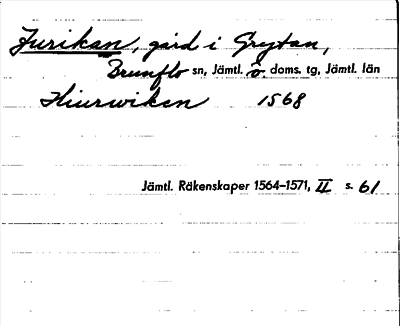 Jurikan, gård i Grytan,
Brunflo sn, Jämtl. Ö. doms. tg, Jämtl. län
Hiurwiken 1568
Jämtl. Räkenskaper 1564–1571, II s. 61